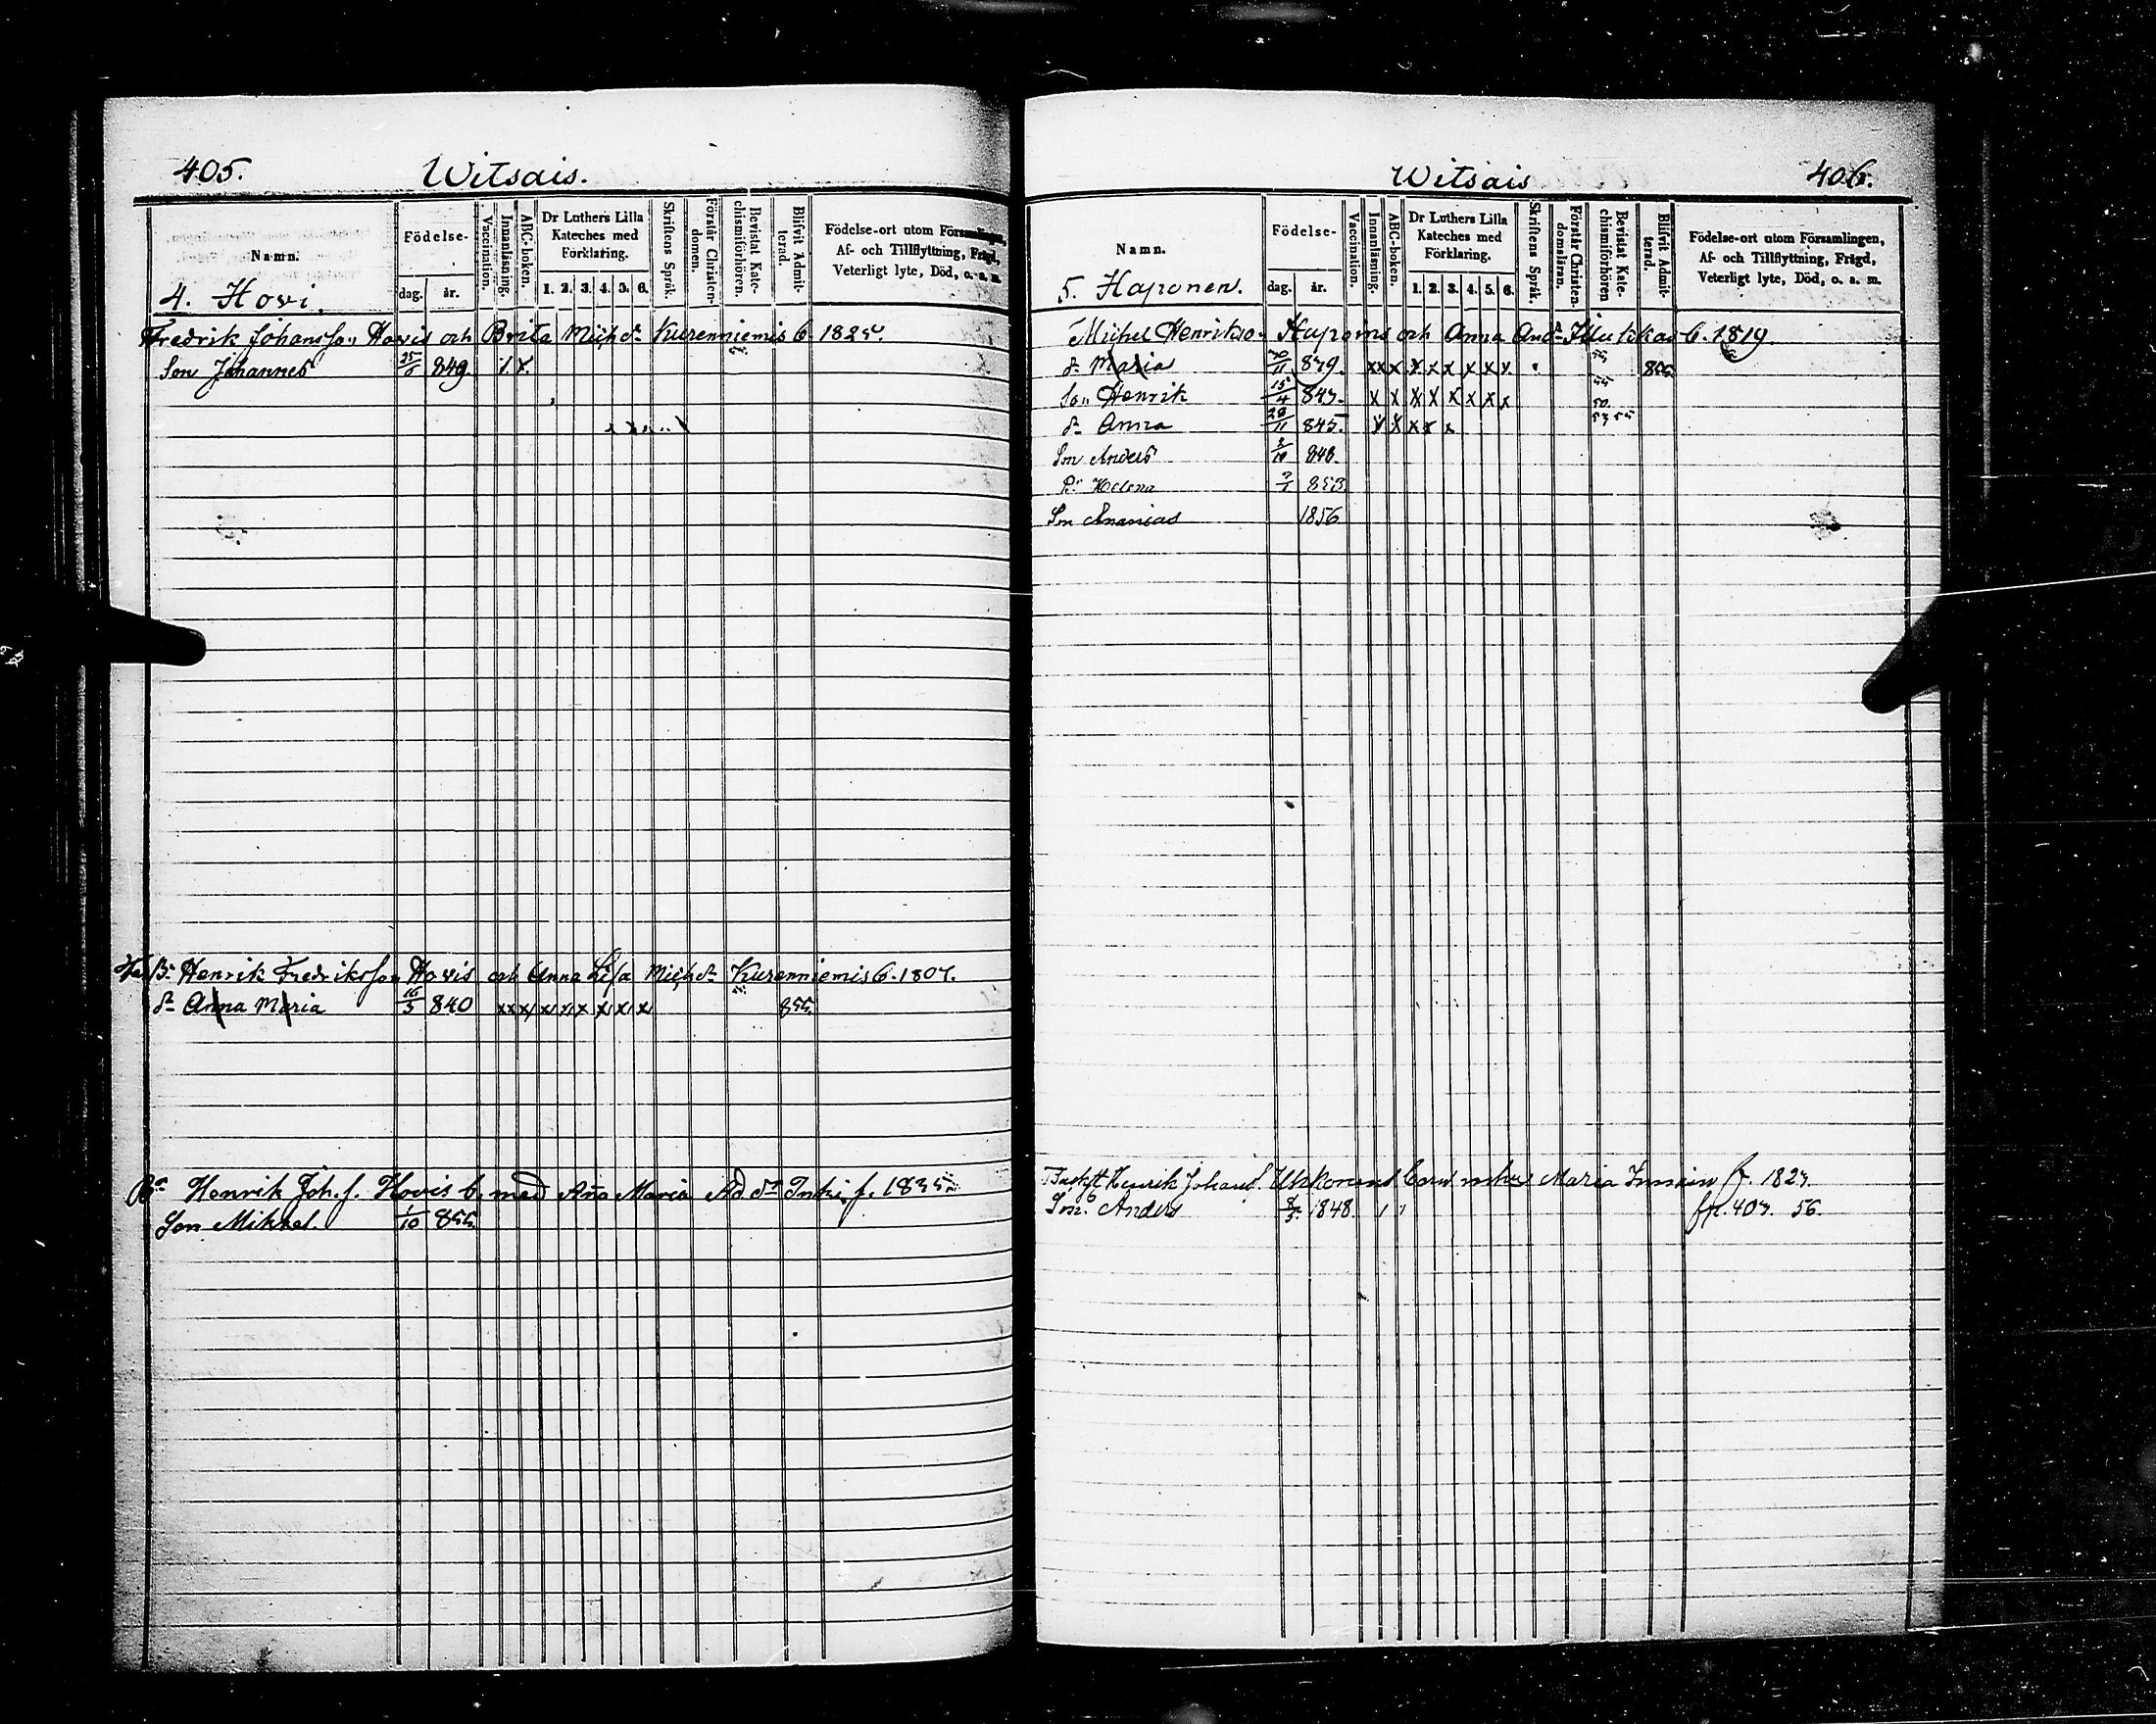 405.
Witsais.
Namn.
Födelse-
dag. år.
Vaccination.
Innanläsning.
ABC-boken.
Dr Luthers Lilla
Kateches med
Förklaring.
1. 2. 3. 4. 5. 6.
Skriftens Språk.
Förstår Christen-
domen.
Bevistat Kate-
chismiförhören.
Blifvit Admit-
terad.
Födelse-ort utom Församlingen,
Af- och Tillflyttning, Frägd,
Veterligt lyte, Död, o. a. m.
4. Hovi.
Fredrik Johansson Hovis och Brita Michds Kurenniemis b. 1825.
Son Johannes 25/6 849. x x
Br Henrik Fredriksson Hovis och Anna Lisa Michdr Kurenniemis b. 1807.
dr Anna Maria 16/5 840 x x x x x x x x x 855.
Br Henrik Joh.s. Hovis b. med Aña Maria Ad. dr Inki f. 1835
Son Mikael. 1/10 855.
Witsais
406.
Namn.
Födelse-
dag. år.
Vaccination.
Innanläsning.
ABC-boken.
Dr Luthers Lilla
Kateches med
Förklaring.
1. 2. 3. 4. 5. 6.
Skriftens Språk.
Förstår Christen-
domsläran.
Bevistat Kate-
chismiförhören
Blifvit Admit-
terad.
Födelse-ort utom Församlingen,
Af- och Tillflyttning, Frägd,
Veterligt lyte, Död, o. a. m.
5. Haponen.
Michel Henrikso. Haponens och Anna And. b. 1819.
dr Maria 11 839. x x x x x x x x x 855.
Son Henrik 15/4 843. x x x x x x x x
dr Anna 28/11 845. x x x x x 53 55
Son Anders 10 848.
Dr Helena 853
Son Ananias 1856
Henrik Johans. Ukkonens Maria Immoin f. 1823.
Son Anders 8/3. 1848. fr. 407. 56.